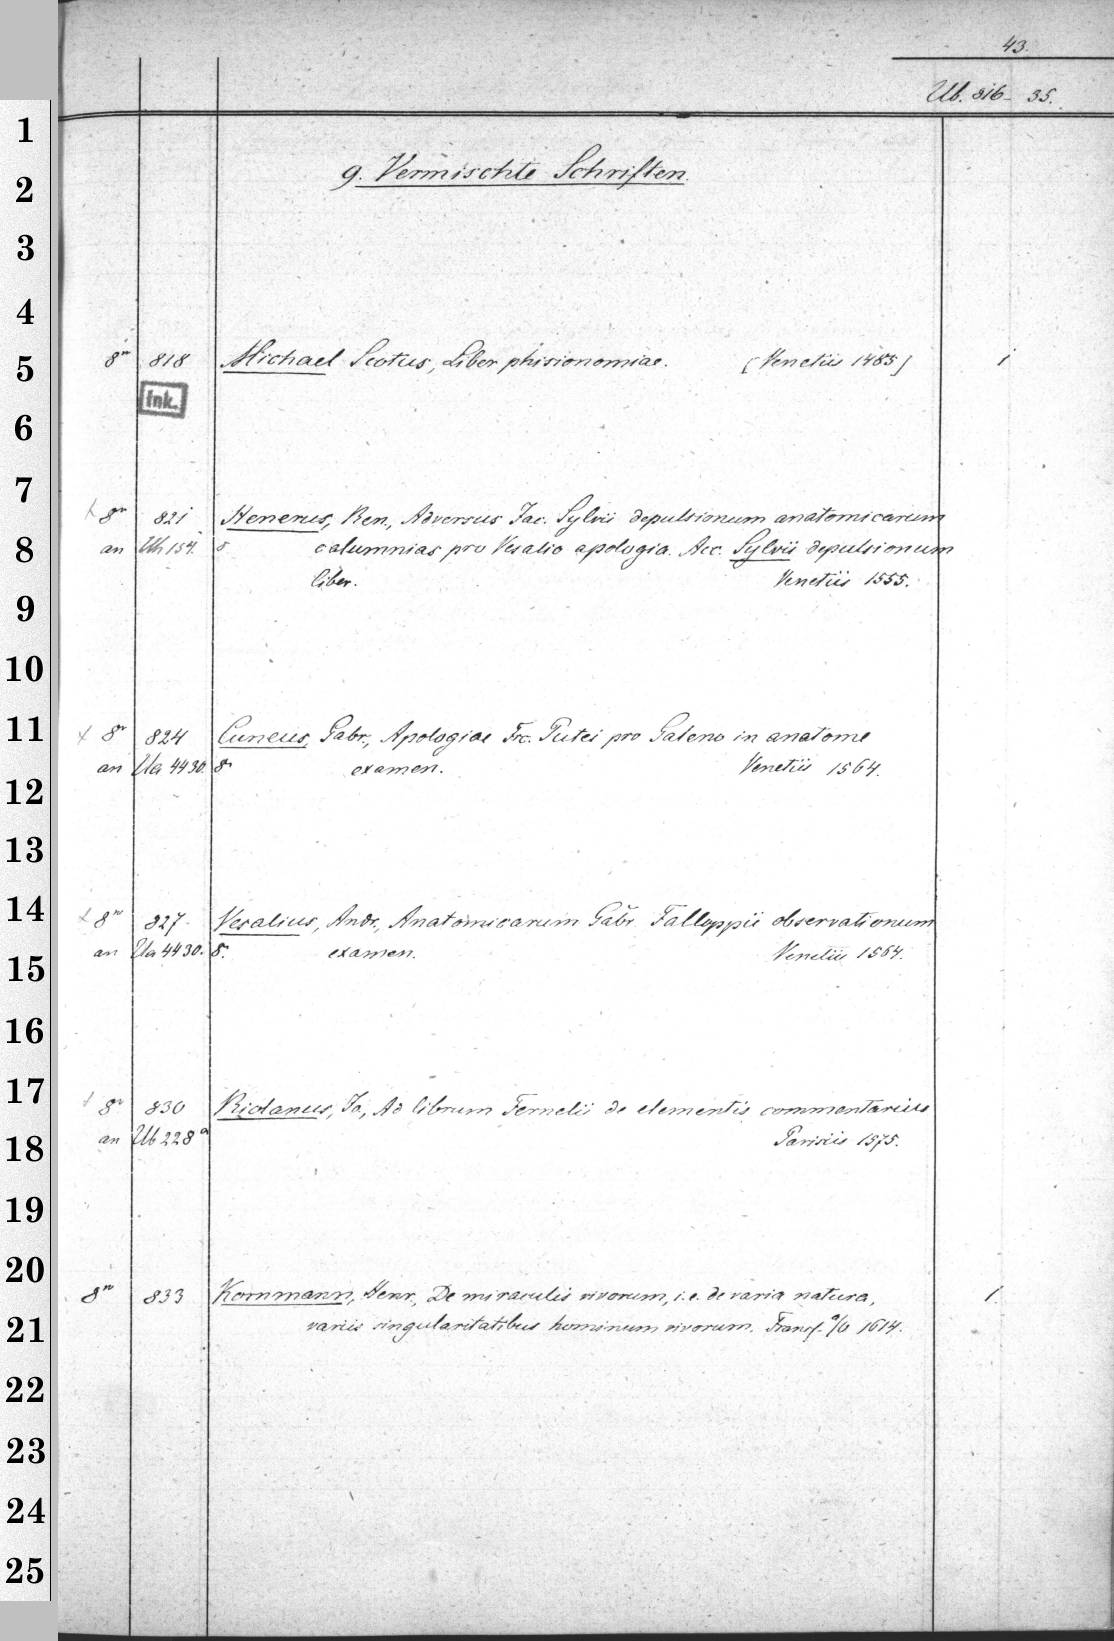 43.
Ub. 816- 35.
1
9. Vermischte Schriften.
2
3
4
8° 818 Michael Scotus, Liber phisionomiae. [Venetiis 1485] 1
5
Ink.
6
7
8° 821 Henerus, Ren., Adversus Jac. Sylvii depulsionum anatomicarum
8
an Uh 154. 8. calumnias pro Vesalio apologia. Acc. Sylvii depulsionum
liber. Venetiis 1555.
9
10
11
8° 824 Cuneus, Gabr., Apologiae Frc. Putei pro Galeno in anatome
an Ua 4430. 8° examen. Venetiis 1564.
12
13
14
8° 827. Vesalius, Andr., Anatomicarum Gabr. Falloppii observationum
an Ua 4430. 8. examen. Venetiis 1564.
15
16
17
8° 830 Riolanus, Jo., Ad librum Fernelii de elementis commentarius
an Ub 228 a Parisiis 1575.
18
19
20
8° 833 Kornmann, Henr., De miraculis vivorum, i.e. de varia natura, 1.
21
variis singularitatibus hominum vivorum. Francf. a/O 1614.
22
23
24
25